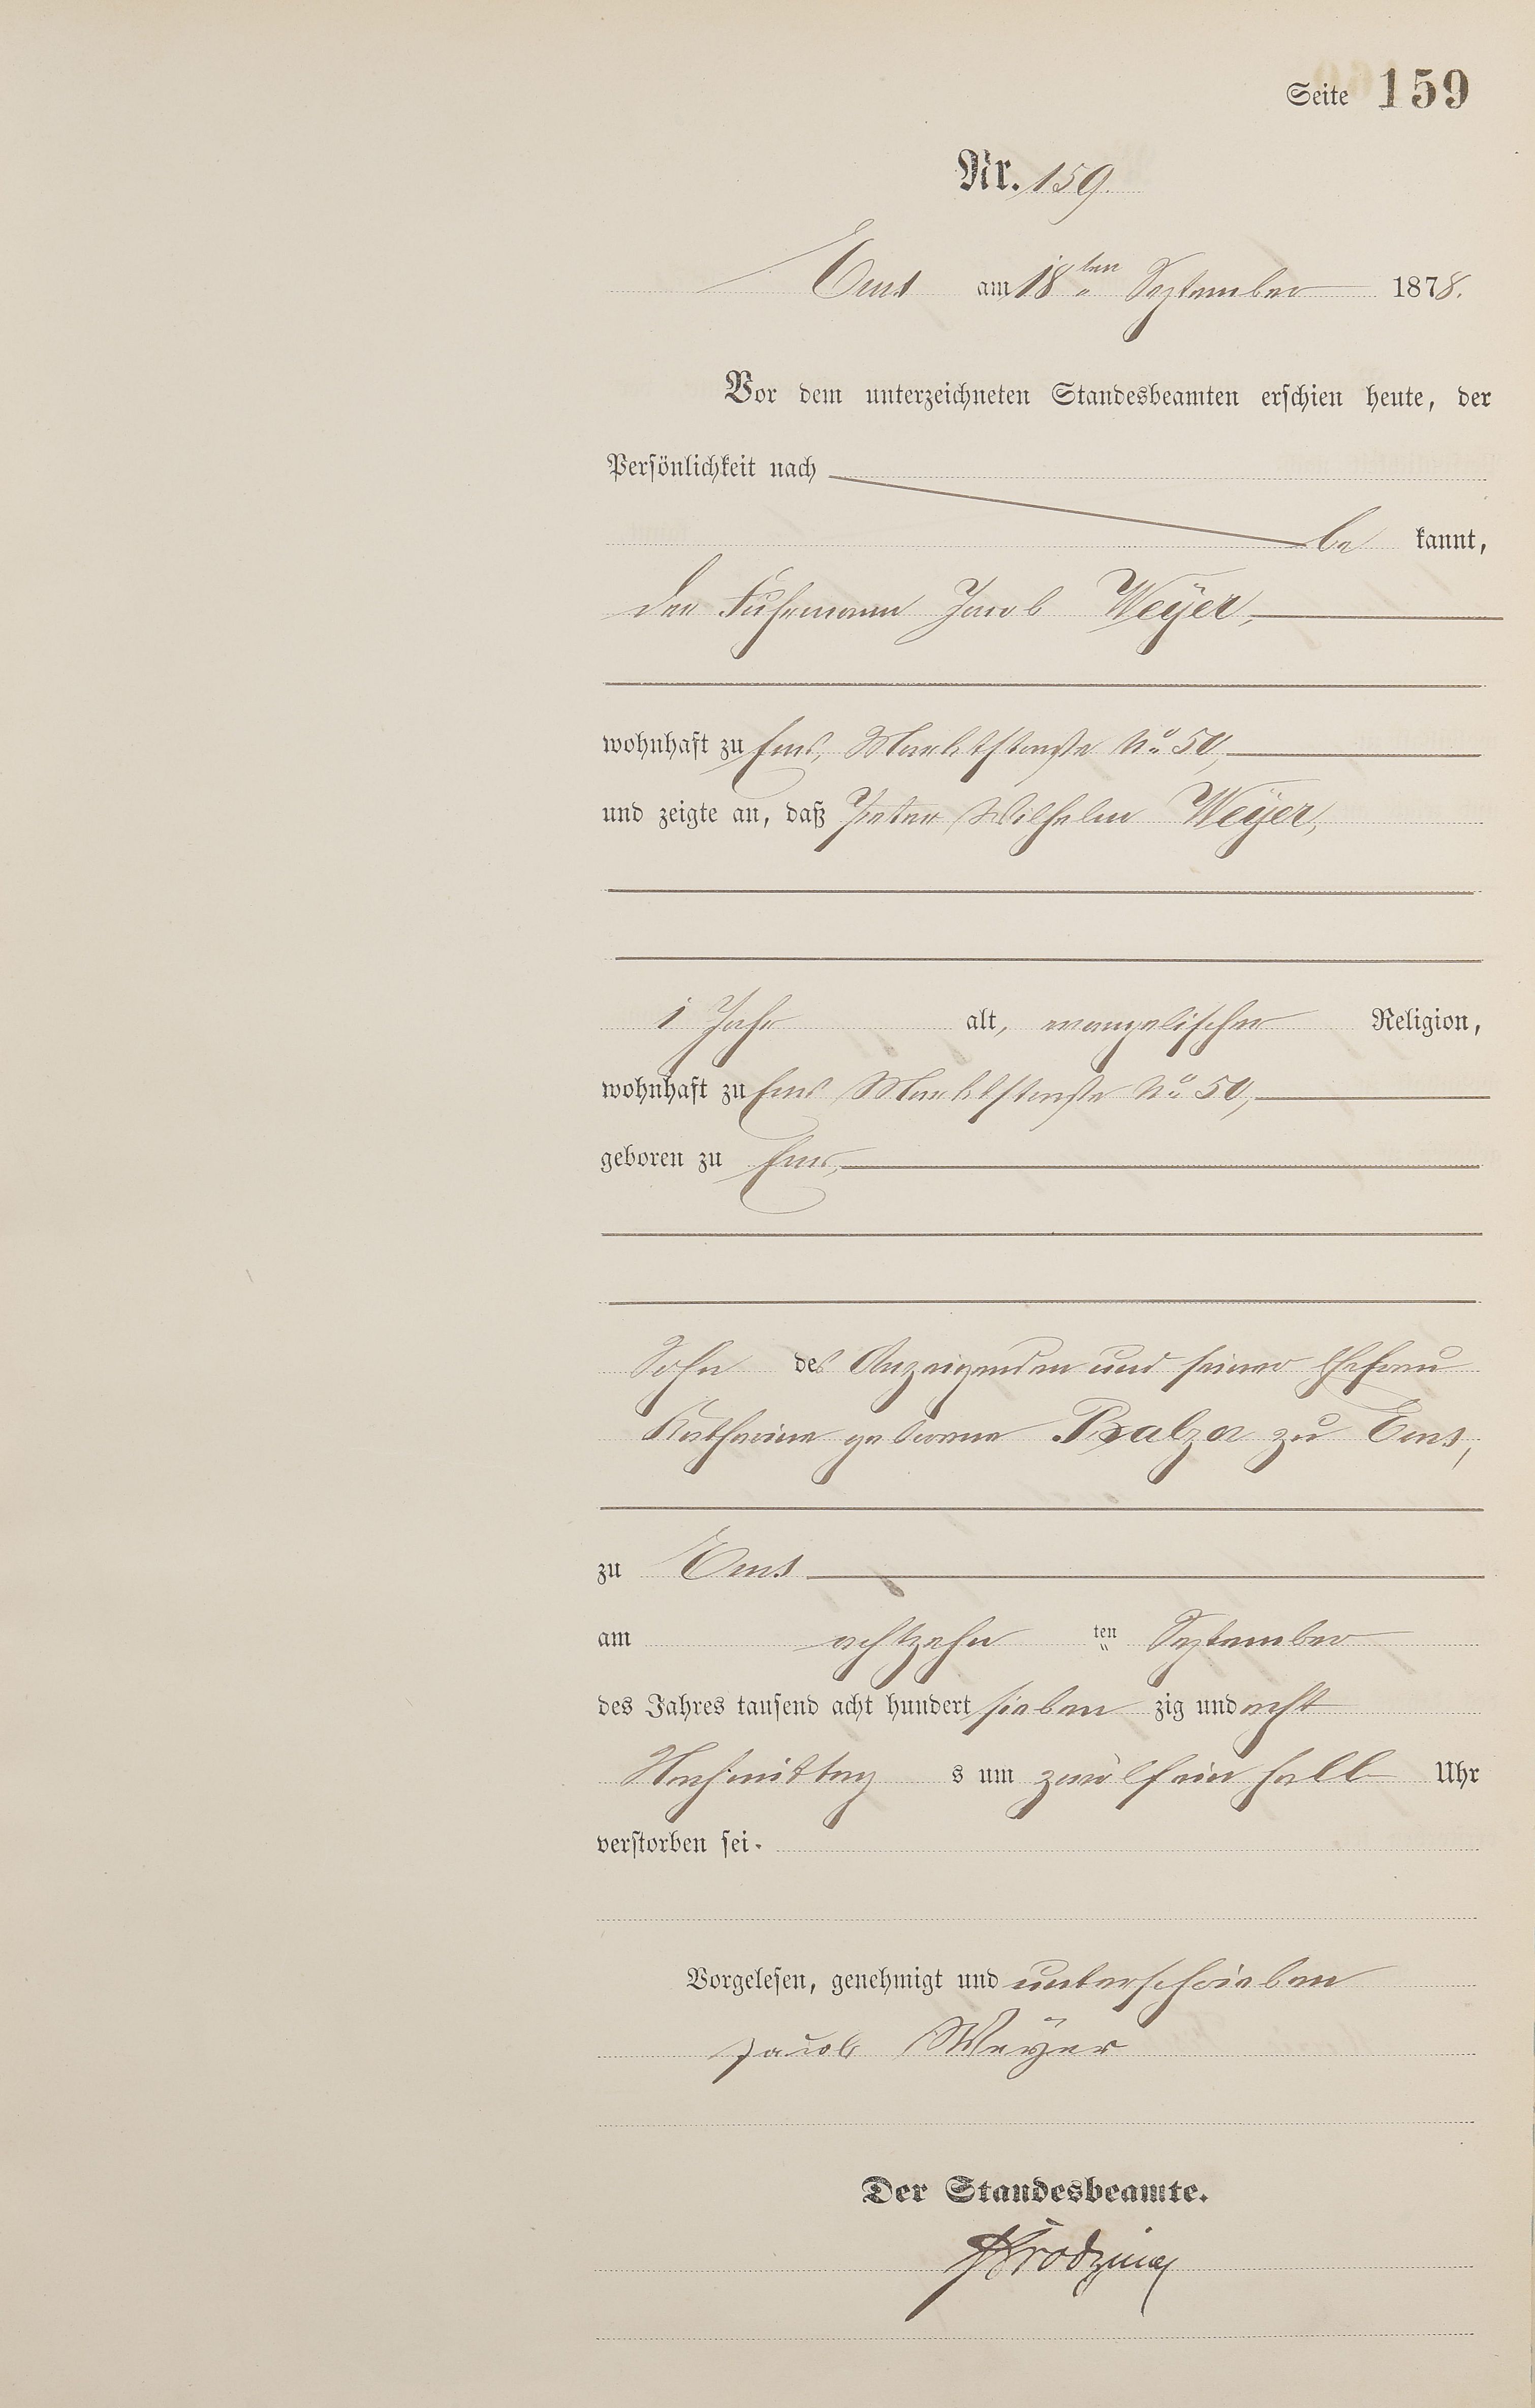 Seite 159
Nr. 159.
Ems am 18ten September 1878.
Vor dem unterzeichneten Standesbeamten erschien heute, der
Persönlichkeit nach
be kannt,
der Fuhrmann Jacob Weÿer,
wohnhaft zu Ems, Marktstraße No. 50,
und zeigte an, daß Peter Wilhelm Weÿer,
1 Jahr alt, evangelischer Religion,
wohnhaft zu Ems Marktstraße No. 50,
geboren zu Ems,
Sohn des Anzeigenden und seiner Ehefrau
Katharina geborene Balzer zu Ems,
zu Ems
am achtzehn ten September
des Jahres tausend acht hundert sieben zig und acht
Nachmittag s um zwölf ein halb Uhr
verstorben sei.
Vorgelesen, genehmigt und unterschrieben
Jacob Weÿer
Der Standesbeamte.